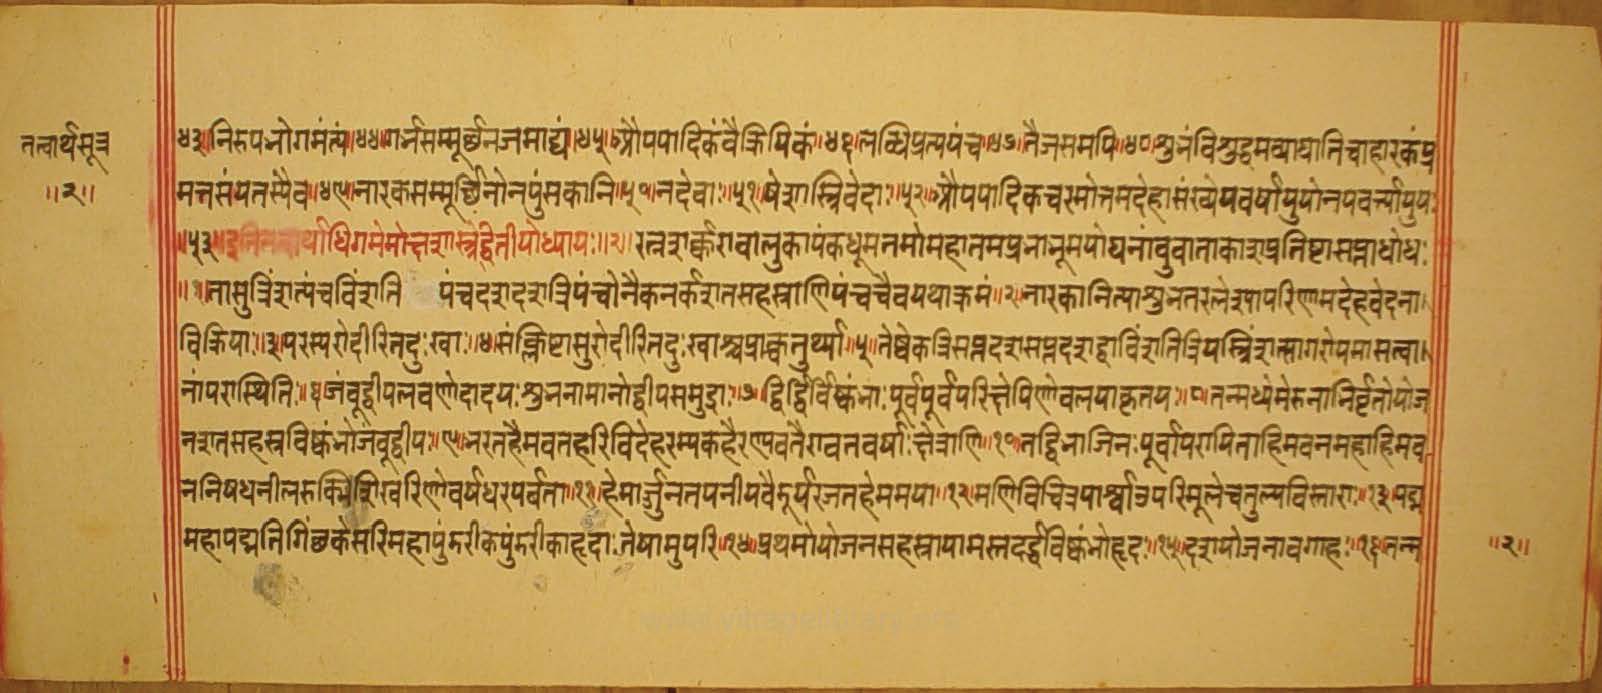 तत्वार्थसूत्र
॥२॥
४३॥निरुपभोगमंत्यं॥४४॥गर्भसम्मूर्छनजमाद्यं॥४५॥औपपादिकंवैक्रियिकं॥४६॥लब्धिप्रत्ययंच॥४७॥तैजसमपि॥४८॥शुभंविशुद्धमव्याघातिचाहारकंप्र
मत्तसंयतस्यैव॥४९॥नारकसम्मूर्छिनोनपुंसकानि॥५०॥नदेवाः॥५१॥शेषास्त्रिवेदाः॥५२॥औपपादिकचरमोत्तमदेहासंख्येयवर्षायुषोनपवर्त्यायुषः
॥५३॥इतितत्वार्थाधिगमेमोक्षशास्त्रेद्वितीयोध्यायः॥२॥रत्नशर्क्करावालुकापंकधूमतमोमहातमप्रभाभूमयोघनांबुवाताकाशप्रतिष्टासप्ताधोधः
॥१॥तासुत्रिंशत्पंचविंशति पंचदशदशत्रिपंचोनैकनर्कशतसहस्राणिपंचचैवयथाक्रमं॥२॥नारकानित्याशुभतरलेश्यापरिणामदेहवेदना
विक्रियाः॥३॥परस्परोदीरितदुःखाः॥४॥संक्लिष्टासुरोदीरितदुःखाश्चप्राक्चतुर्थ्याः॥५॥तेष्वेकत्रिसप्तदशसप्तदशद्वाविंशतित्रयस्त्रिंशत्सागरोपमासत्वा
नांपरास्थितिः॥६॥जंबूद्वीपलवणोदादयःशुभनामानोद्वीपसमुद्राः॥७॥द्विर्द्विर्विष्कंभाःपूर्वपूर्वपरिक्षेपिणोवलयाकृतयः॥८॥तन्मध्येमेरुनाभिर्वृत्तोयोज
नशतसहस्रविष्कंभोजंबूद्वीपः॥९॥भरतहैमवतहरिविदेहरम्यकहैरण्यवतैरावतवर्षाःक्षेत्राणि॥१०॥तद्विभाजिनःपूर्वापरायिताहिमवनमहाहिमव
ननिषधनीलरुक्मिशिखरिणोवर्षधरपर्वताः॥११॥हेमार्जुनतपनीयवैडूर्यरजतहेममयाः॥१२॥मणिविचित्रपार्श्वाउपरिमूलेचतुल्यविस्ताराः॥१३॥पद्म
महापद्मतिगिंछकेसरिमहापुंडरीकपुंडरीकाहृदास्तेषामुपरि॥१४॥प्रथमोयोजनसहस्रायामस्तदर्द्धविष्कंभोहृदः॥१५॥दशयोजनावगाहः॥१६॥तन्म
॥२॥